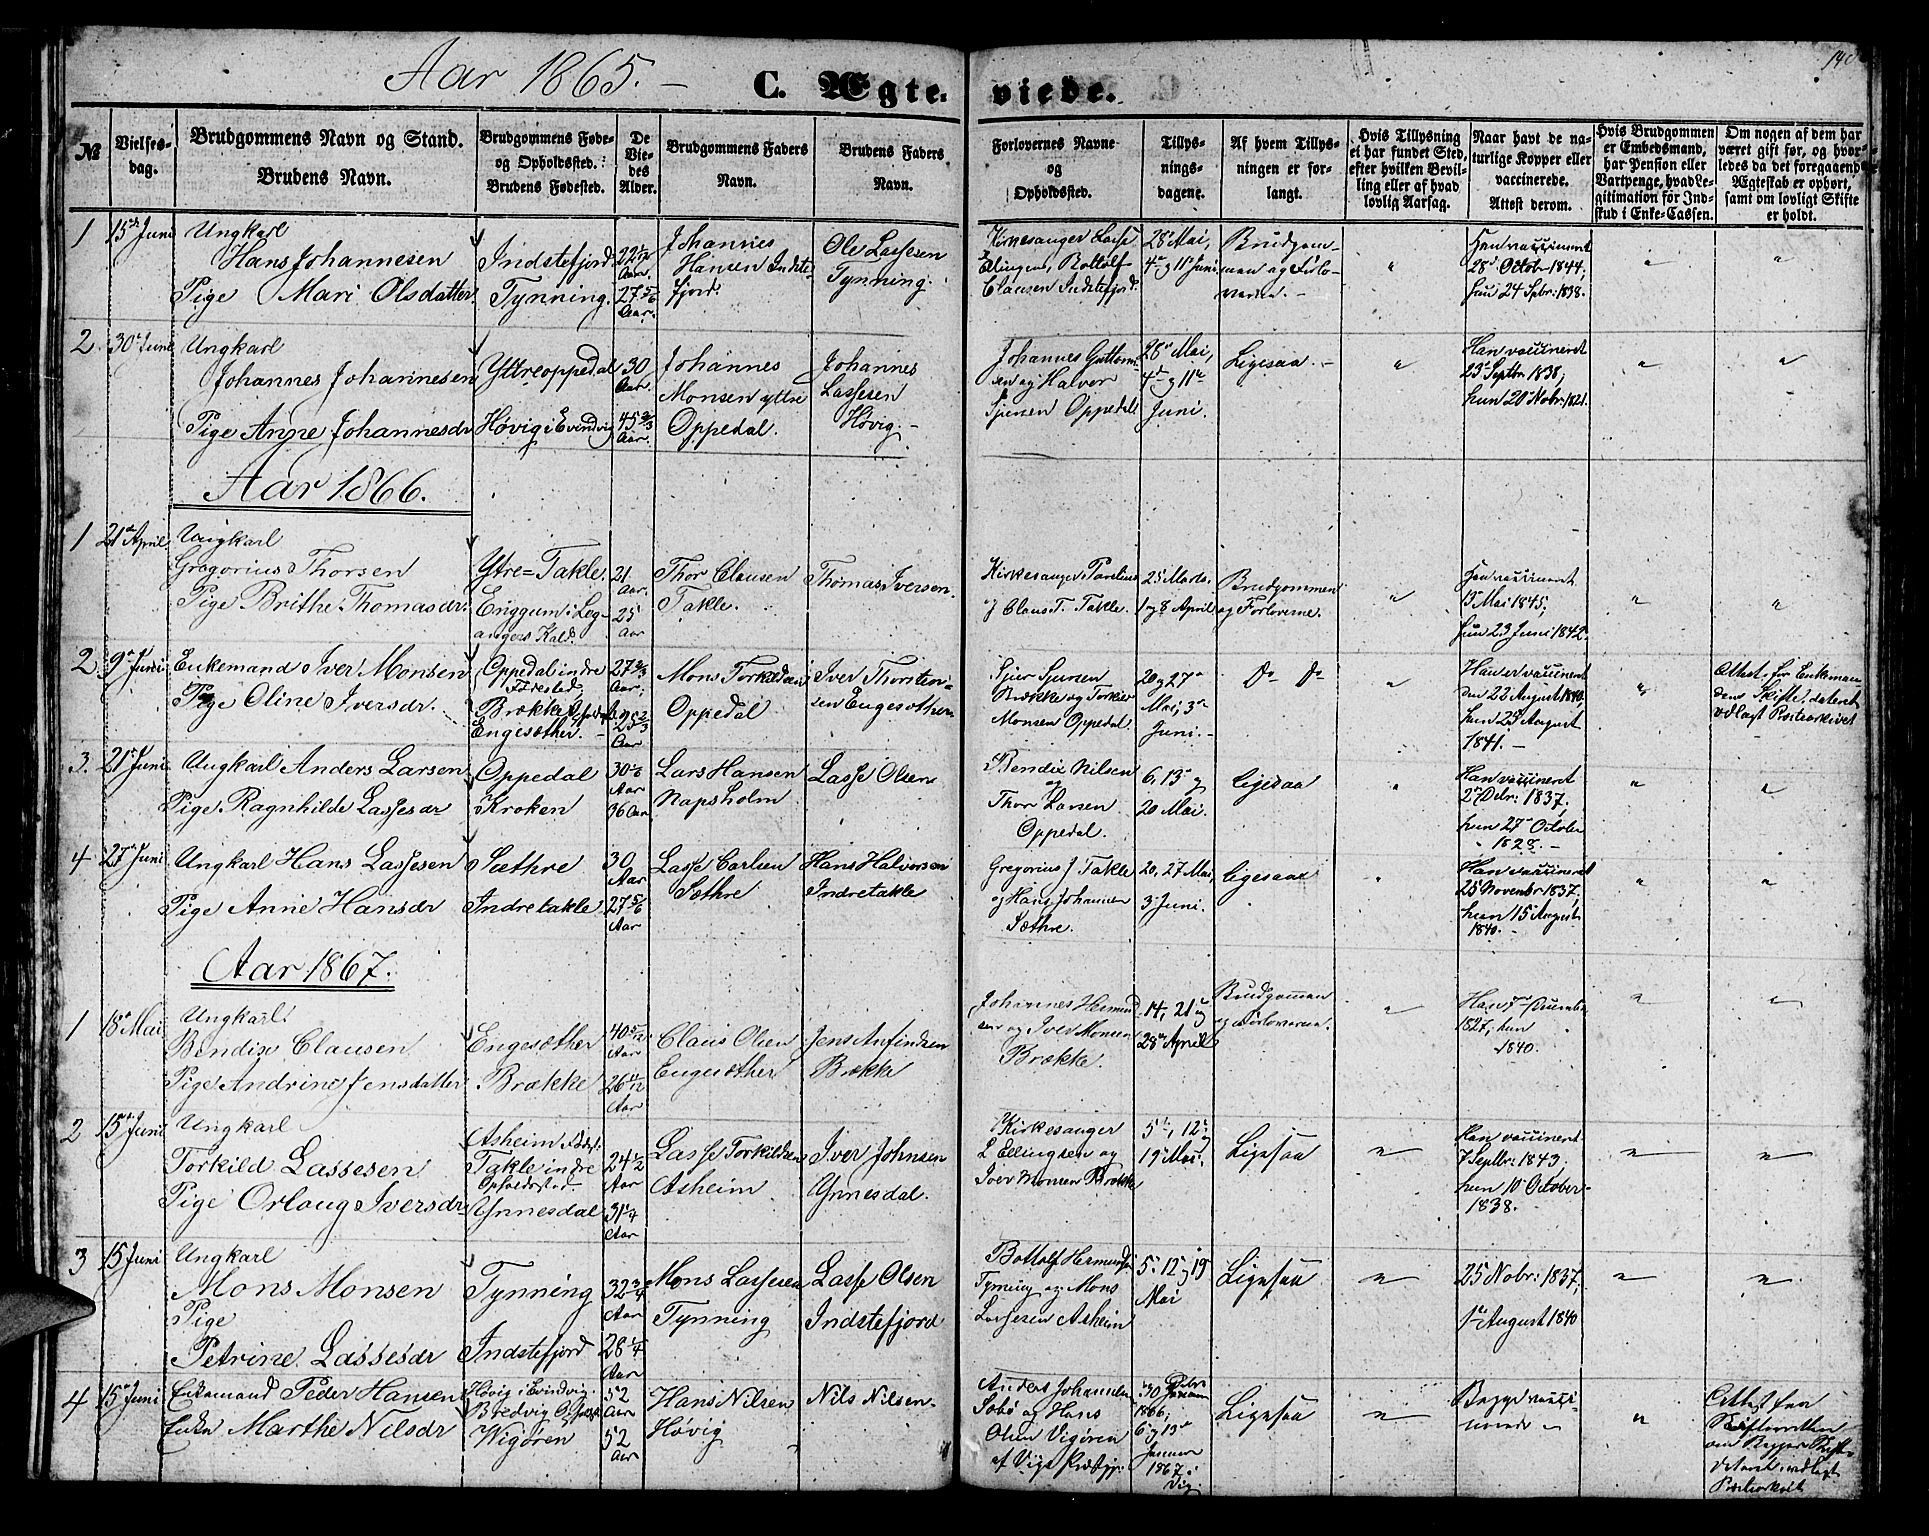 Aar 1865. –
C. Ægte-viede.
140
№
Vielses-dag.
Brudgommens Navn og Stand.
Brudens Navn.
Brudgommens Føde-
og Opholdssted.
Brudens Fødested.
De Vie-des Alder.
Brudgommens Faders
Navn.
Brudens Faders
Navn.
Forlovernes Navne
og
Opholdssted.
Tillys-
nings-
dagene.
Af hvem Tillys-
ningen er for-
langt.
Hvis Tillysning
ei har fundet Sted,
efter hvilken Bevil-
ling eller af hvad
lovlig Aarsag.
Naar havt de na-
turlige Kopper eller
vaccinerede.
Attest derom.
Hvis Brudgommen
er Embedsmand,
har Pension eller
Vartpenge, hvad Le-
gitimation for Ind-
skud i Enke-Cassen.
Om nogen af dem har
været gift før, og hvor-
ledes da det foregaaende
Ægteskab er ophørt,
samt om lovligt Skifte
er holdt.
1
15de Juni
Ungkarl
Hans Johannesen
Pige Mari Olsdatter
Indstefjord
Tynning.
22 1/2
Aar.
27 5/6
Aar.
Johannes
Hansen Indste
fjord.
Ole Lassesen
Tynning.
Kirkesanger Lasse
Ellingsen, Bottolf
Clausen Indstefjord.
28de Mai,
4de og 11te Juni
Brudgom-
man og Forlo-
verne. –
Han vaccineret
28de Octobr 1844,
hun 24 Sptbr: 1838.
2
30de Juni
Ungkarl
Johannes Johannesen
Pige Anne Johannesdr
Yttreoppedal
Høvig i Evindvig
30
Aar.
45 2/3
Aar.
Johannes
Monsen yttre
Oppedal.
Johannes
Lassesen
Høvig. –
Johannes Guttorm
sen og Halvor
Sjursen Oppedal
28de Mai,
4de og 11te
Juni.
Ligesaa. –
Han vaccineret
23de Septbr 1838,
hun 20de Nobr: 1821.
Aar 1866.
1
21de April
Ungkarl
Gregorius Thorsen
Pige Brithe Thomasdr.
Ytre=Takle.
Enggum i Leg-
angers Kald.
21
Aar.
25
Aar
Thor Clausen
Takle.
Thomas Iversen.
Kirkesanger
Claus T. Takle.
25 Marts.
1 og 8 April
Brudgommen
og Forloverne.
Han vaccineret
13 Mai 1845.
hun 23 Juni 1842.
2
9de Juni
Enkemand Iver Monsen
Pige Oline Iversdr.
Oppedal indre
Fødested,
Brække
Engesæther.
27 2/3
Aar.
25 2/3
Aar
Mons Torkildsen
Oppedal
Iver Thorsten-
sen Engesæther
Sjur Sjursen
Brække og Torkild
Monsen Oppedal.
20 og 27de
Mai, 3de
Juni. –
Do Do
Han er vaccineret
den 22 August 1840,
hun 25 August
1841. –
Attest for Enkeman
dens Skifte, dateret
vidlagt
3.
21de Juni
Ungkarl Anders Larsen
Pige Ragnhilde Lassesdr
Oppedal
Kroken
30 1/6
Aar
36 Aar
Lars Hansen
Napsholm
Lasse Olsen
Bendix Nilsen
og
Thor Larsen
Oppedal.
6, 13de og
20 Mai.
Ligesaa
Han vaccineret
27 Debr: 1837,
hun 27de October
1828. –
4
27de Juni
Ungkarl Hans Lassesen
Pige Anne Hansdr
Sæthre
Indretakle
30
Aar
27 5/6
Aar
Lasse Carlsen
Sæthre
Hans Halvorsen
Indretakle
Gregorius J Takle
og Hans Johannesen
Sæthre.
20, 27 Mai,
3de Juni.
Ligesaa
Han vaccineret
25 Novembr 1837,
hun 15 August
1840. –
Aar 1867.
1
18de Mai
Ungkarl
Bendix Clausen
Pige Andrine Jensdatter
Engesæther
Brække
40 5/12
Aar
26 11/12
Aar
Claus Olsen
Engesæther
Jens Anfindsen
Brække
Johannes Hermund
sen og Iver Monsen
Brække
14, 21 og
28de April
Brudgomman
og Forloverne.
1827, hun
1840.
2
15de Juni
Ungkarl
Torkild Lassesen
Pige Orlaug Iversdr
Asheim Fødest:
Takle indre
Opholdssted.
Ynnesdal
24 1/2
Aar
31 1/4
Aar
Lasse Torkildsen
Asheim
Iver Johnsen
Ynnesdal.
Kirkesanger
L Ellingsen og
Iver Monsen Brække
5te, 12te og
19 Mai.
Ligesaa
Han vaccineret
7 Septbr: 1843,
hun 10 October
1838.
3
15 Juni
Ungkarl
Mons Monsen
Pige
Petrine Lassesdr
Tynning
Indstefjord
32 3/4
Aar
28 1/4
Aar
Mons Lassesen
Tynning
Lasse Olsen
Indstefjord
Bottolf Hermunds
Tynning og Mons
Lassesen Asheim
5. 12 og 19
Mai
Ligesaa
25 Nobr: 1837,
1de August 1840
4
15de Juni
Enkemand Peder Hansen
Enke Marthe Nilsdr
Høvig i Evindvig.
Bredvig
Wigøren
52
Aar
52
Aar
Hans Nilsen
Høvig
Nils Nilsen.
Anders Johannesen
Sobø og Hans
Olsen Vigøren
30
1866,
6 og 13de
Januar
1867.
Ligesaa
Begge vacci-
nerede –
Attest fra
Skifteretten
om Begges Skifte
dateret vidlagt